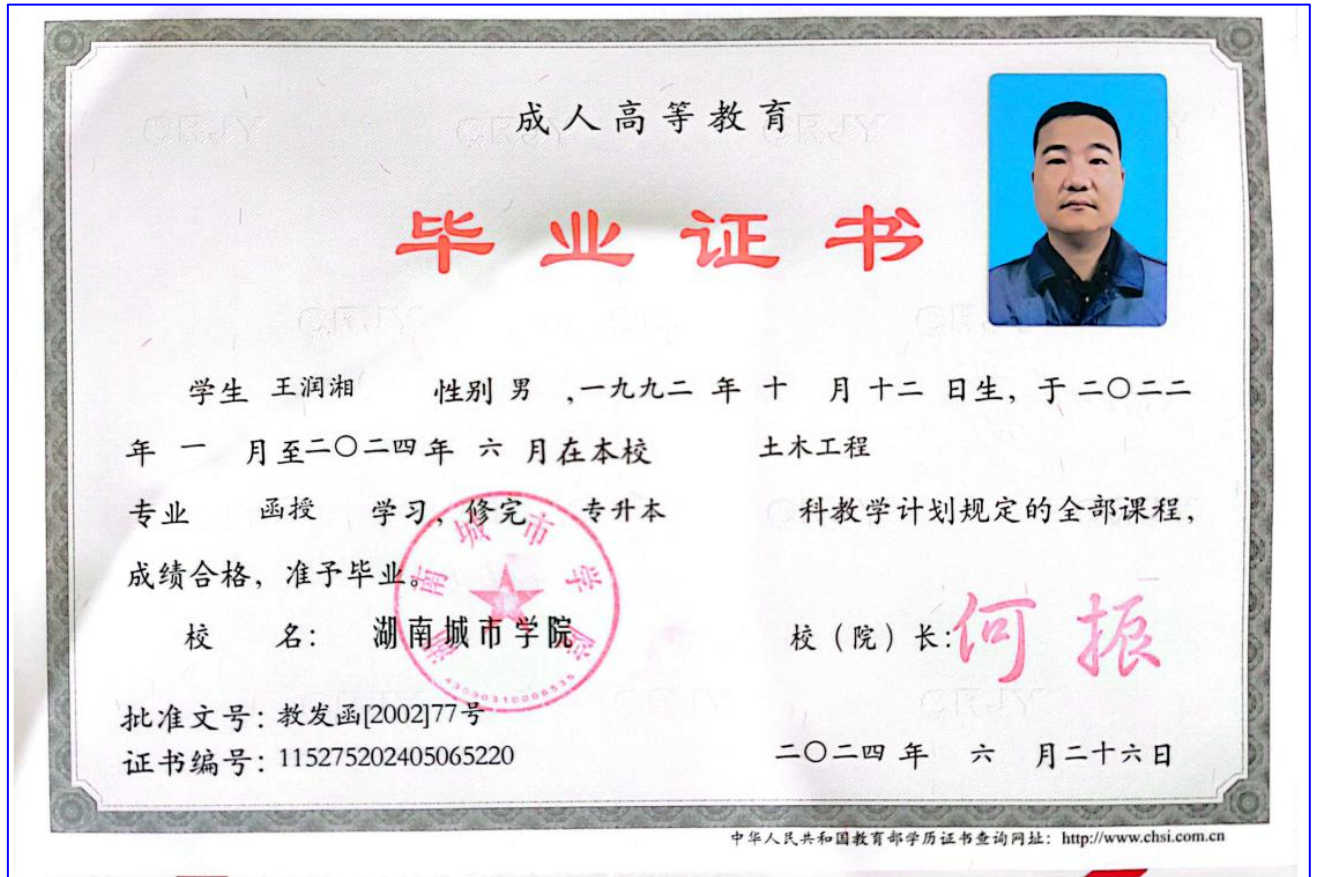 成人高等教育
毕业证书
学生 王润湘 性别 男 ,一九九二 年 十 月 十二 日生, 于 二〇二二
年 一 月至二〇二四年 六 月在本校 土木工程
专业 函授 学习, 修完 专升本 科教学计划规定的全部课程,
成绩合格, 准予毕业。
校 名: 湖南城市学院 校（院）长: 何振
湖南城市学院
批准文号: 教发函[2002]77号
证书编号: 115275202405065220 二〇二四 年 六 月二十六日
中华人民共和国教育部学历证书查询网址: http://www.chsi.com.cn